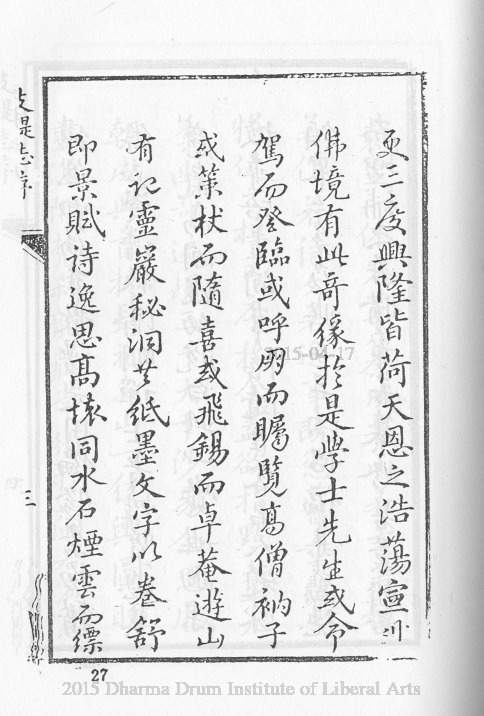 更三度興隆皆荷天恩之浩蕩宣
佛境有此奇像於是學士先生或命
駕而登臨或呼朋而矚覽高僧衲子
或策杖而隨喜或飛錫而卓菴遊山
有記靈巖秘洞共紙墨文字以卷舒
即景賦詩逸思高懷同水石煙雲而縹
支提志序
三
27
2015-04-17
2015 Dharma Drum Institute of Liberal Arts